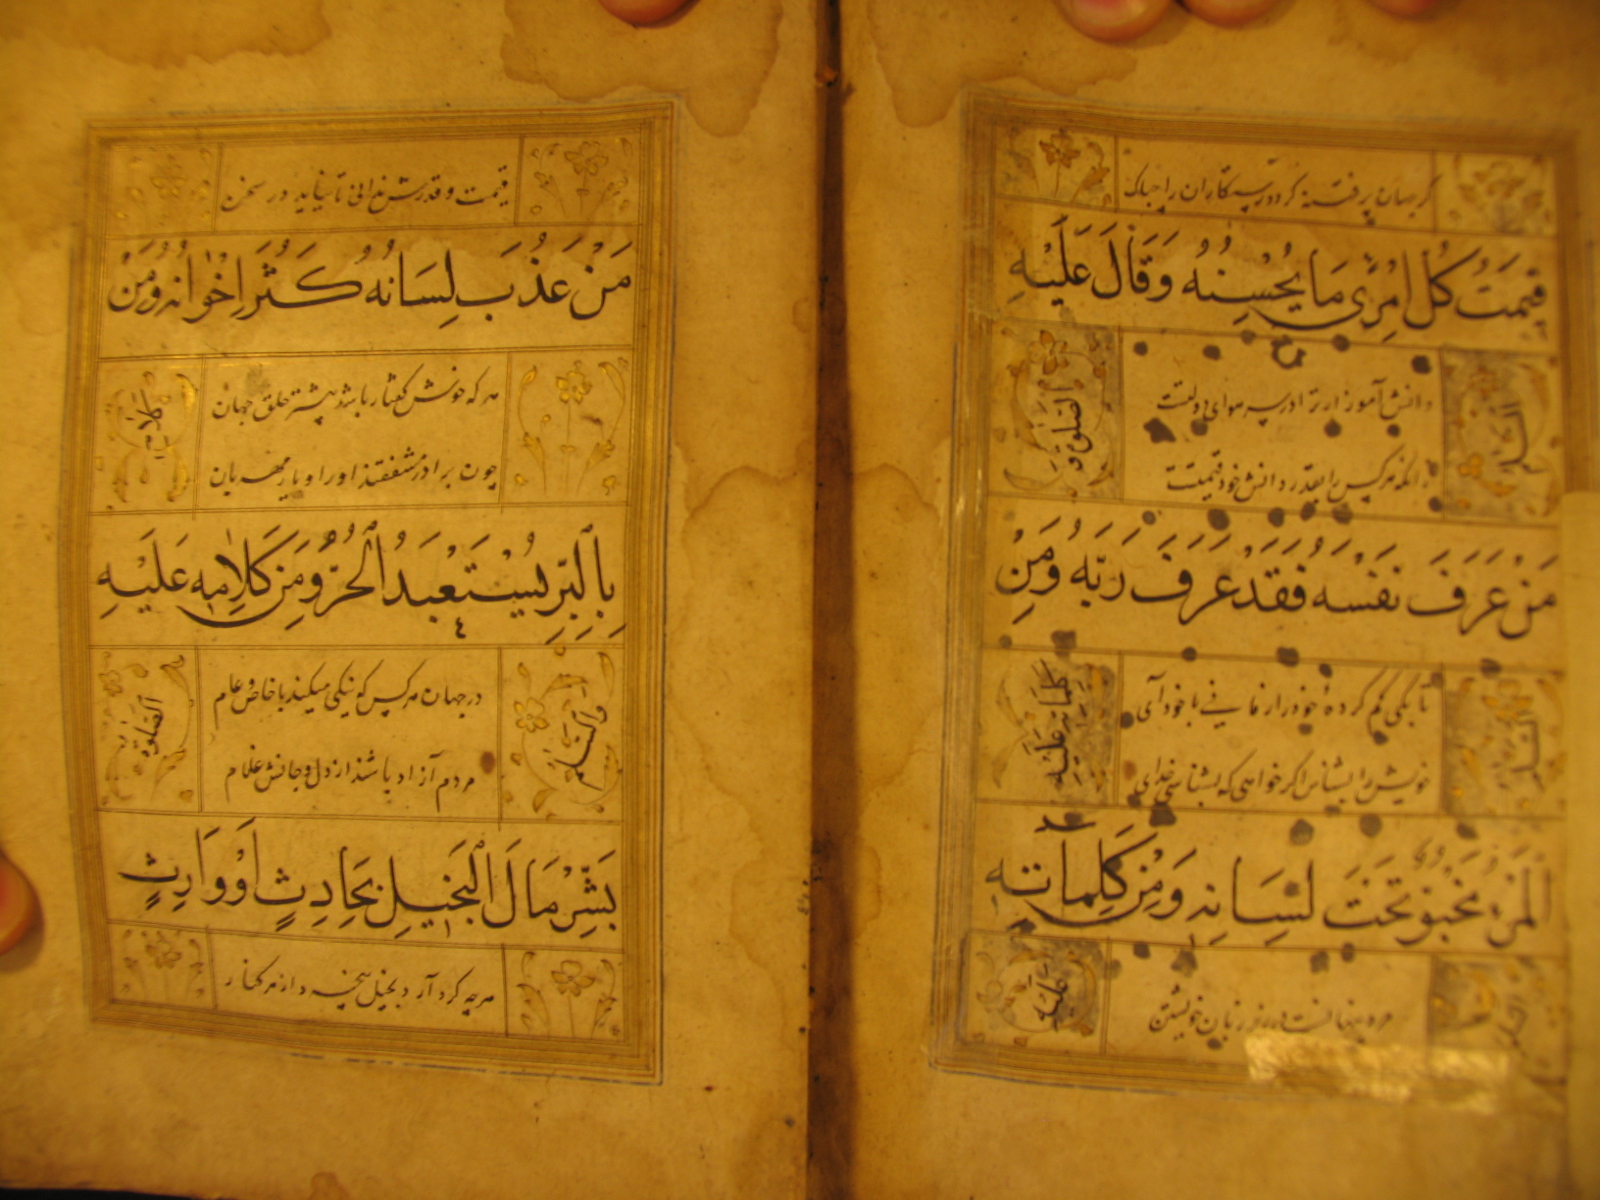 گر جهان پر فتنه گردد رستکاران را چه باک
قیمَتُ كُلِّ امْرِیٍ مَا یُحْسِنُهُ وَقَالَ عَلَيْهِ
الصلوة و
السلام
دانش آموز ار ترا در سر هوای دولتست
زانکه هرکس را بقدر دانش خود قیمتست
مَنْ عَرَفَ نَفْسَهُ فَقَدْ عَرَفَ رَبَّهُ وَمِنْ
کلماته علیه
السلام
تا بکی گم کردهٔ خود را ز غافی با خود آی
خویش را بشناس اگر خواهی که بشناسی خدای
المَرْءُ مَخْبُوٌّ تَحْتَ لِسَانِهِ وَمِنْ كَلِمَاتِهِ
علیه
مرد پنهانست در زیر زبان خویشتن
قیمت و قدرش ندانی تا نیاید در سخن
مَنْ عَذُبَ لِسَانُهُ كَثُرَ اِخْوَانُهُ وَمَنْ
کلام
هر که خوش گفتار باشد بیشتر خلق جهان
چون برادر مشفقند او را و یار مهربان
بِالْبِرِّ يُسْتَعْبَدُ الْحُرُّ وَمِنْ كَلَامِهِ عَلَيْهِ
الصلوة
والسلام
در جهان هرکس که نیکی میکند با خاص و عام
مردم آزاد باشند از دل و جانش غلام
بَشِّرْ مَالَ الْبَخِيلِ بِحَادِثٍ اَوْ وَارِثٍ
هرچه گرد آرد بخیل سخته دل از هر کنار